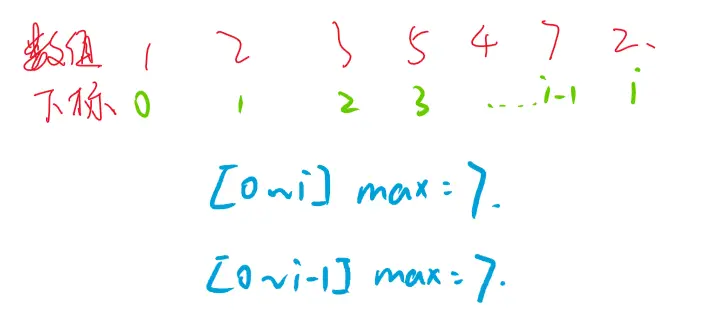 数值 1 2 3 5 4 7 2、
下标 0 1 2 3 ...... i-1 i
[0~i] max=7.
[0~i-1] max=7.